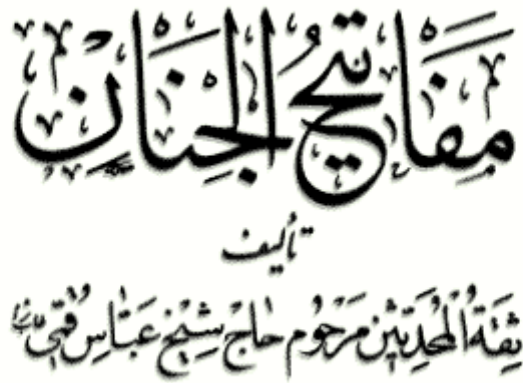 مفاتیح الجنان
تألیف
ثقة المحدثین مرحوم حاج شیخ عباس قمی